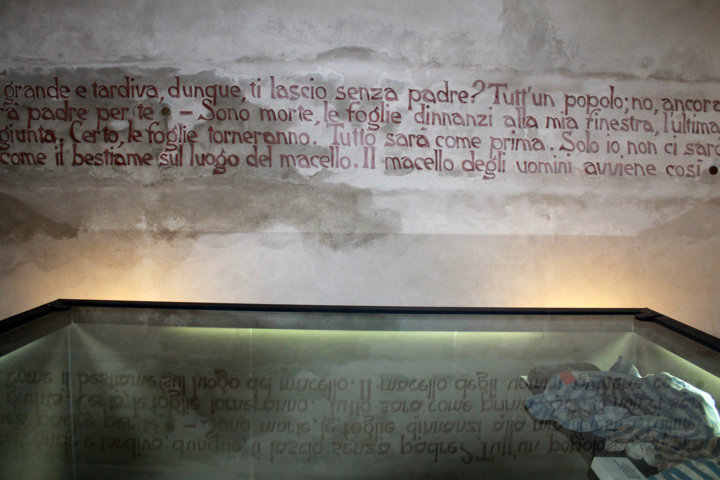 grande e tardiva, dunque, ti lascio senza padre? Tutt'un popolo; no, ancora
à padre per te. - Sono morte, le foglie dinnanzi alla mia finestra, l'ultima
giunta. Certo, le foglie torneranno. Tutto sarà come prima. Solo io non ci sarò
come il bestiame sul luogo del macello. Il macello degli uomini avviene così